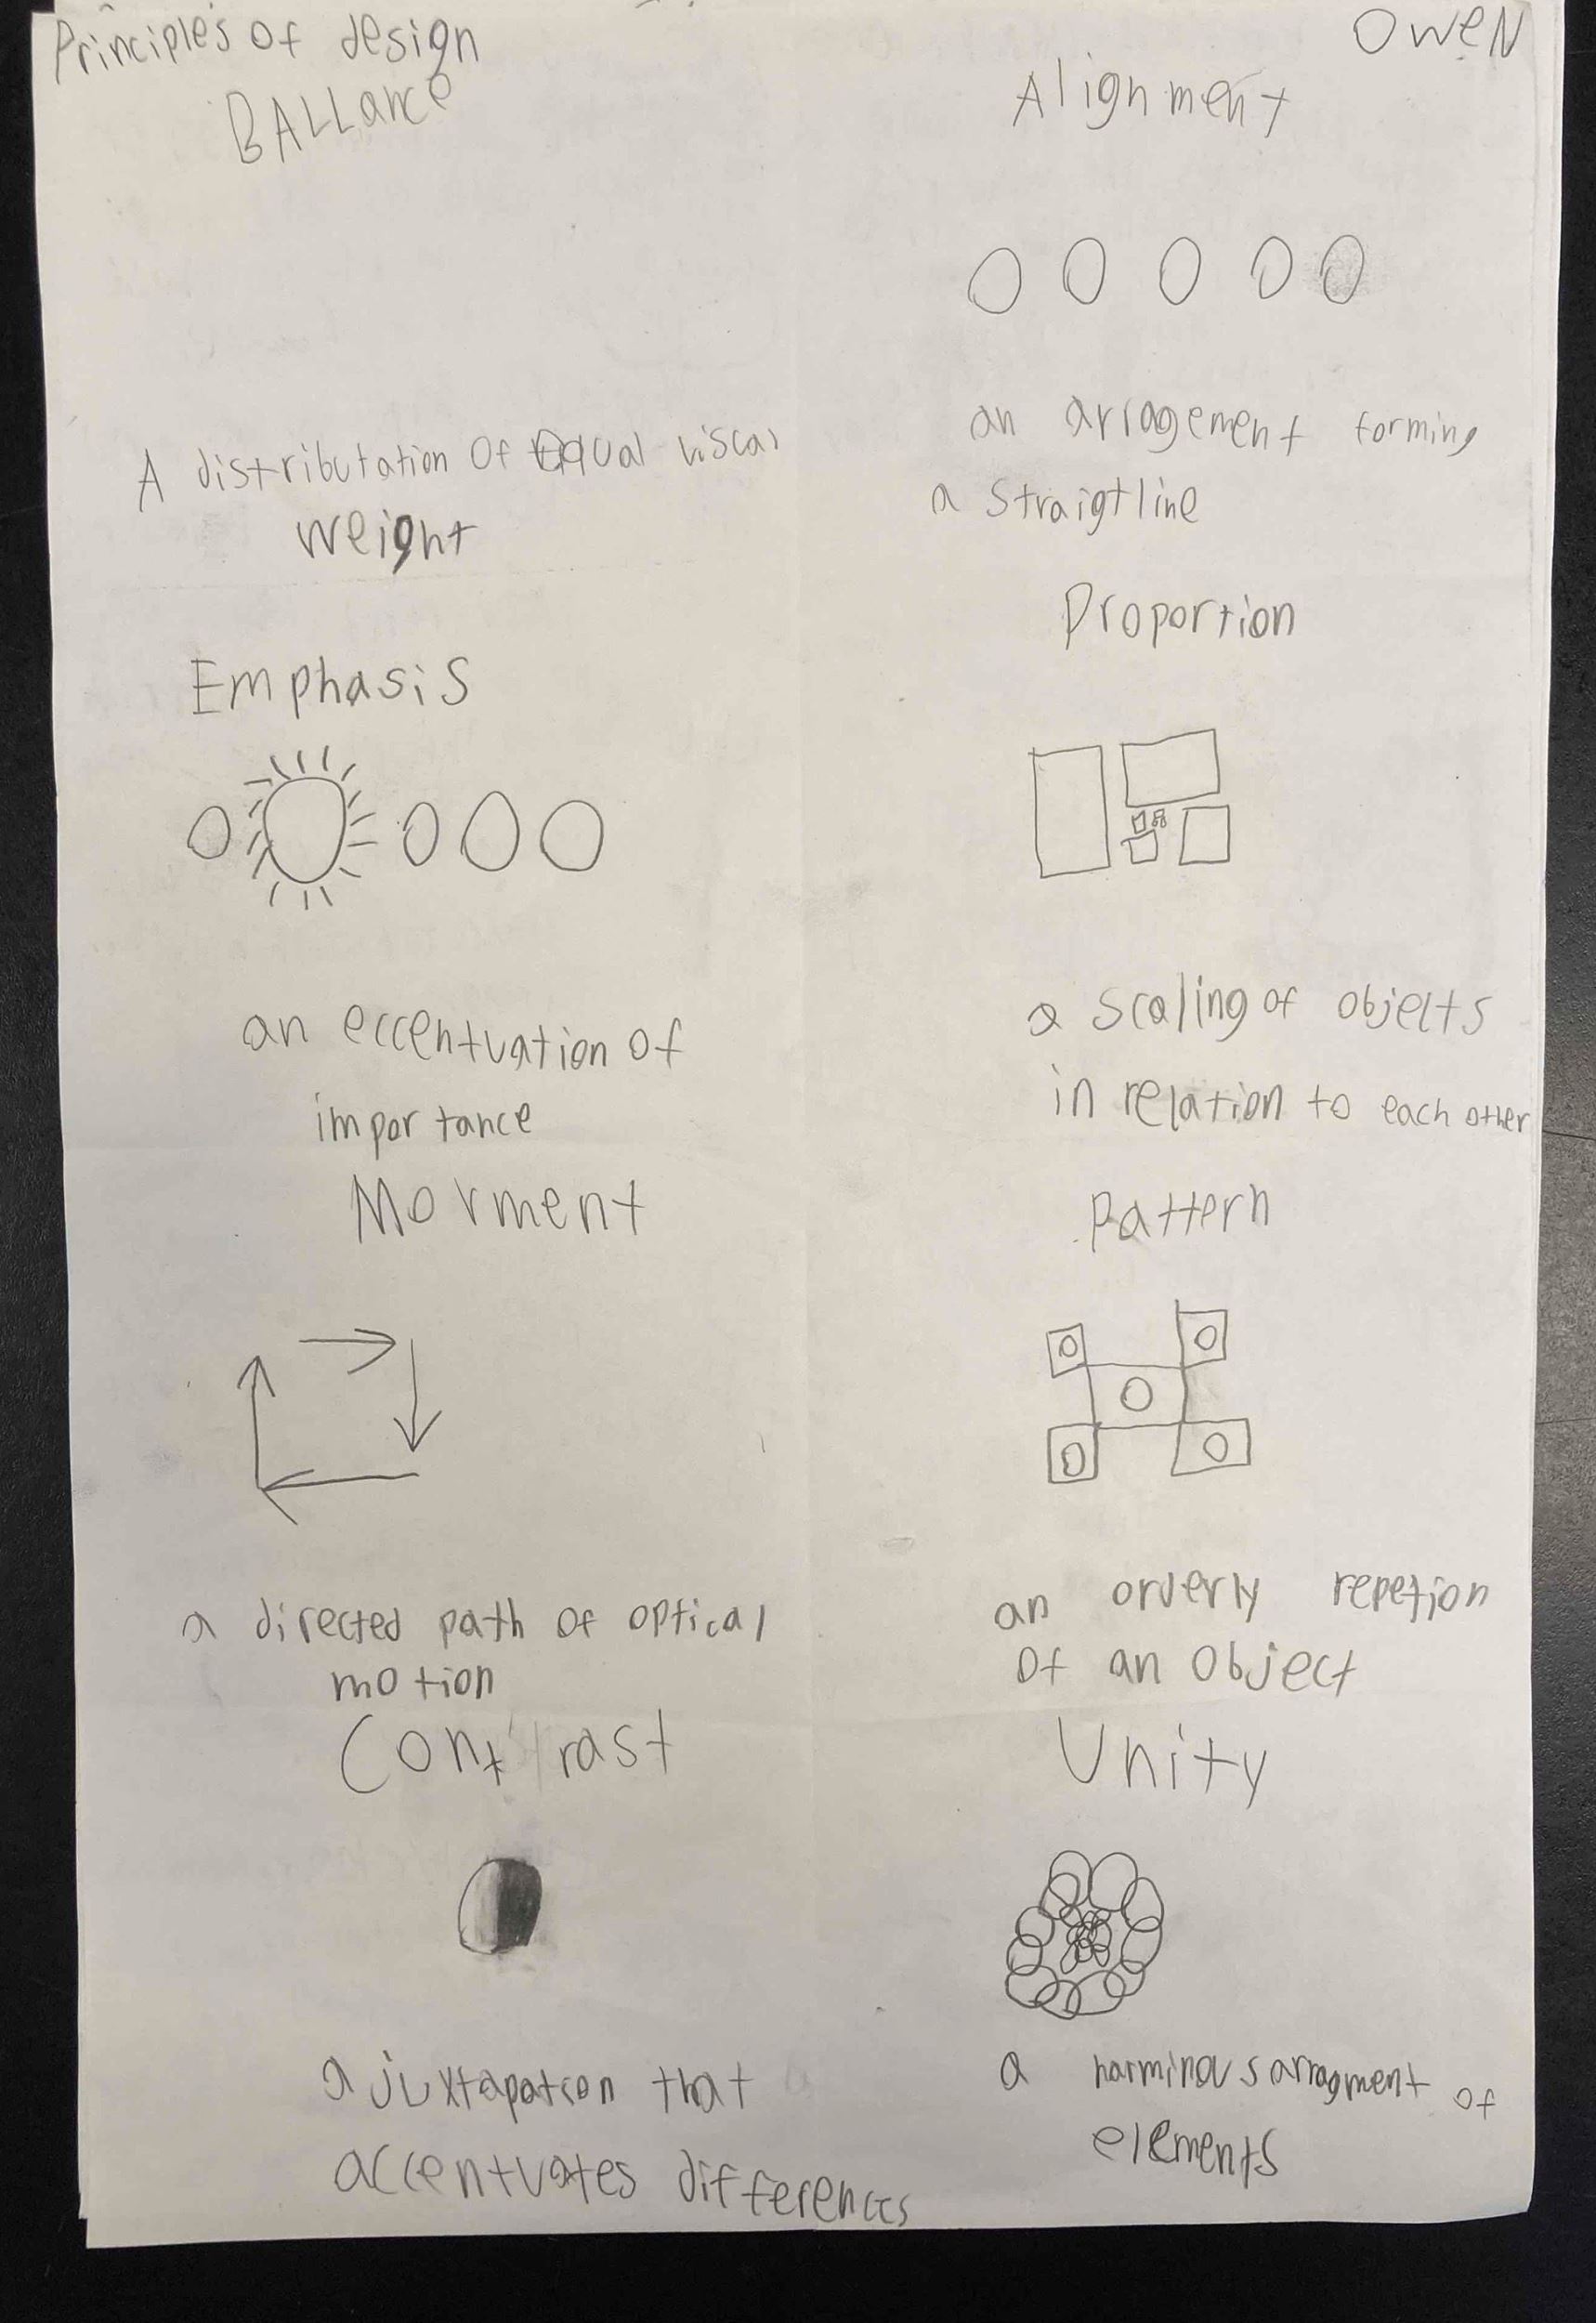 Principles of design
Owen
BALLance
Alignment
A distributation Of Equal viscal
weight
an arragement forming
a straigtline
Emphasis
Proportion
an eccentuation of
importance
a scaling of objects
in relation to each other
Movment
Pattern
a directed path of optical
motion
an orderly repetion
of an Object
Contrast
Unity
a juxtapatcon that
accentuates differences
a harminous arragment of
elements